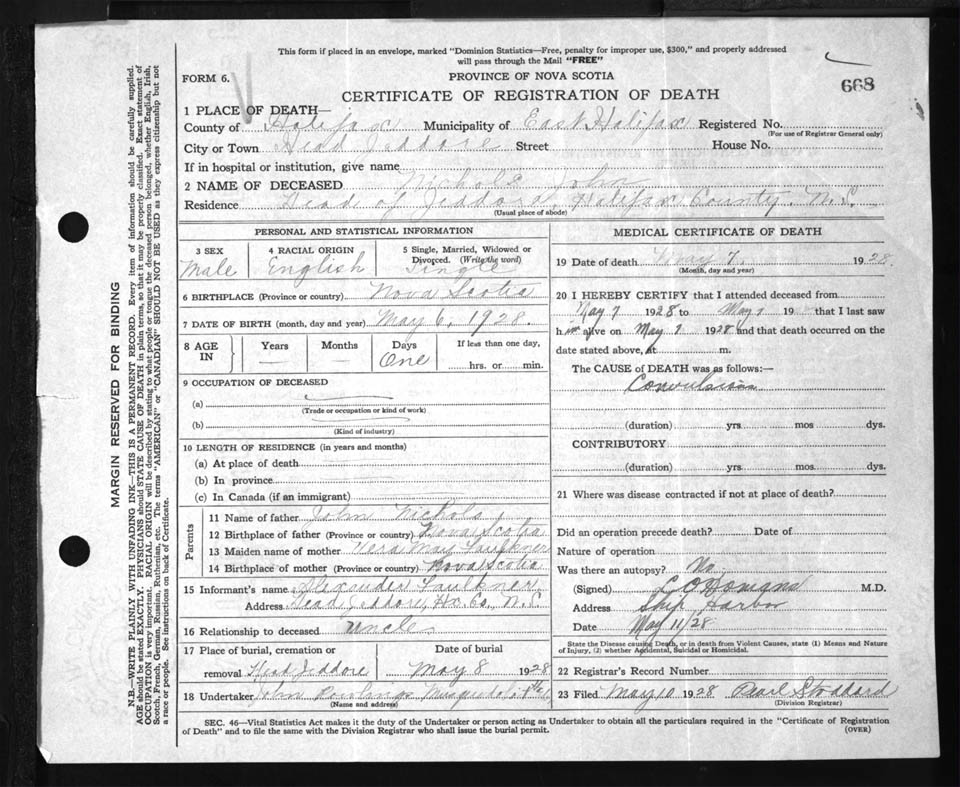 This form if placed in an envelope, marked "Dominion Statistics—Free, penalty for improper use, $300," and properly addressed
will pass through the Mail "FREE"
FORM 6.
PROVINCE OF NOVA SCOTIA
668
CERTIFICATE OF REGISTRATION OF DEATH
1 PLACE OF DEATH—
County of Halifax Municipality of East Halifax Registered No.
(For use of Registrar General only)
City or Town Head Jeddore Street House No.
If in hospital or institution, give name
2 NAME OF DECEASED Nichols John
Residence Head of Jeddore, Halifax County. N.S.
(Usual place of abode)
PERSONAL AND STATISTICAL INFORMATION
3 SEX 4 RACIAL ORIGIN 5 Single, Married, Widowed or
Divorced. (Write the word)
Male English Single
6 BIRTHPLACE (Province or country) Nova Scotia
7 DATE OF BIRTH (month, day and year) May 6, 1928.
8 AGE IN Years Months Days If less than one day,
One hrs. or min.
9 OCCUPATION OF DECEASED
(a)
(Trade or occupation or kind of work)
(b)
(Kind of industry)
10 LENGTH OF RESIDENCE (in years and months)
(a) At place of death
(b) In province
(c) In Canada (if an immigrant)
Parents
11 Name of father John Nichols
12 Birthplace of father (Province or country) Nova Scotia
13 Maiden name of mother Vera May Faulkner
14 Birthplace of mother (Province or country) Nova Scotia
15 Informant's name Alexander Faulkner
Address Head Jeddore, Hx. Co., N.S.
16 Relationship to deceased Uncle
17 Place of burial, cremation or Date of burial
removal Head Jeddore May 8 1928
18 Undertaker John
(Name and address)
MEDICAL CERTIFICATE OF DEATH
19 Date of death May 7. 1928.
(Month, day and year)
20 I HEREBY CERTIFY that I attended deceased from
May 7 1928 to May 7 19 that I last saw
him alive on May 7 1928 and that death occurred on
date stated above, at m.
The CAUSE OF DEATH was as follows:—
Convulsions
(duration) yrs mos dys.
CONTRIBUTORY
(duration) yrs. mos. dys.
21 Where was disease contracted if not at place of death?
Did an operation precede death? Date of
Nature of operation
Was there an autopsy? No
(Signed) M.D.
Address Ship Harbor
Date May 11/28
State the Disease causing Death, or in death from Violent Causes, state (1) Means and Nature
of Injury, (2) whether Accidental, Suicidal or Homicidal.
22 Registrar's Record Number
23 Filed May 10 1928 Pearl Stoddard
(Division Registrar)
SEC. 46—Vital Statistics Act makes it the duty of the Undertaker or person acting as Undertaker to obtain all the particulars required in the "Certificate of Registration
of Death" and to file the same with the Division Registrar who shall issue the burial permit.
(OVER)
MARGIN RESERVED FOR BINDING
N.B.—WRITE PLAINLY WITH UNFADING INK—THIS IS A PERMANENT RECORD. Every item of information should be carefully supplied.
AGE should be stated EXACTLY. PHYSICIANS should STATE CAUSE OF DEATH in plain terms, so that it may be properly classified. Exact statement of
OCCUPATION is very important. RACIAL ORIGIN will be described by stating to what people or tongue the deceased person belonged, whether English, Irish,
Scotch, French, German, Russian, Ruthenian, etc. The terms "AMERICAN" or "CANADIAN" SHOULD NOT BE USED as they express citizenship but not
a race or people. See instructions on back of Certificate.